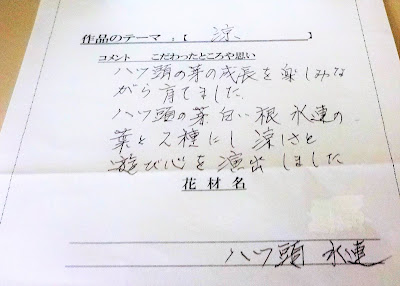 作品のテーマ：【 涼 】
コメント こだわったところや思い
ハツ頭の芽の成長を楽しみな
がら育てました
ハツ頭の芽 白い根 水連の
葉と2種にし 涼しさと
遊び心を演出しました
花材名
ハツ頭 水連